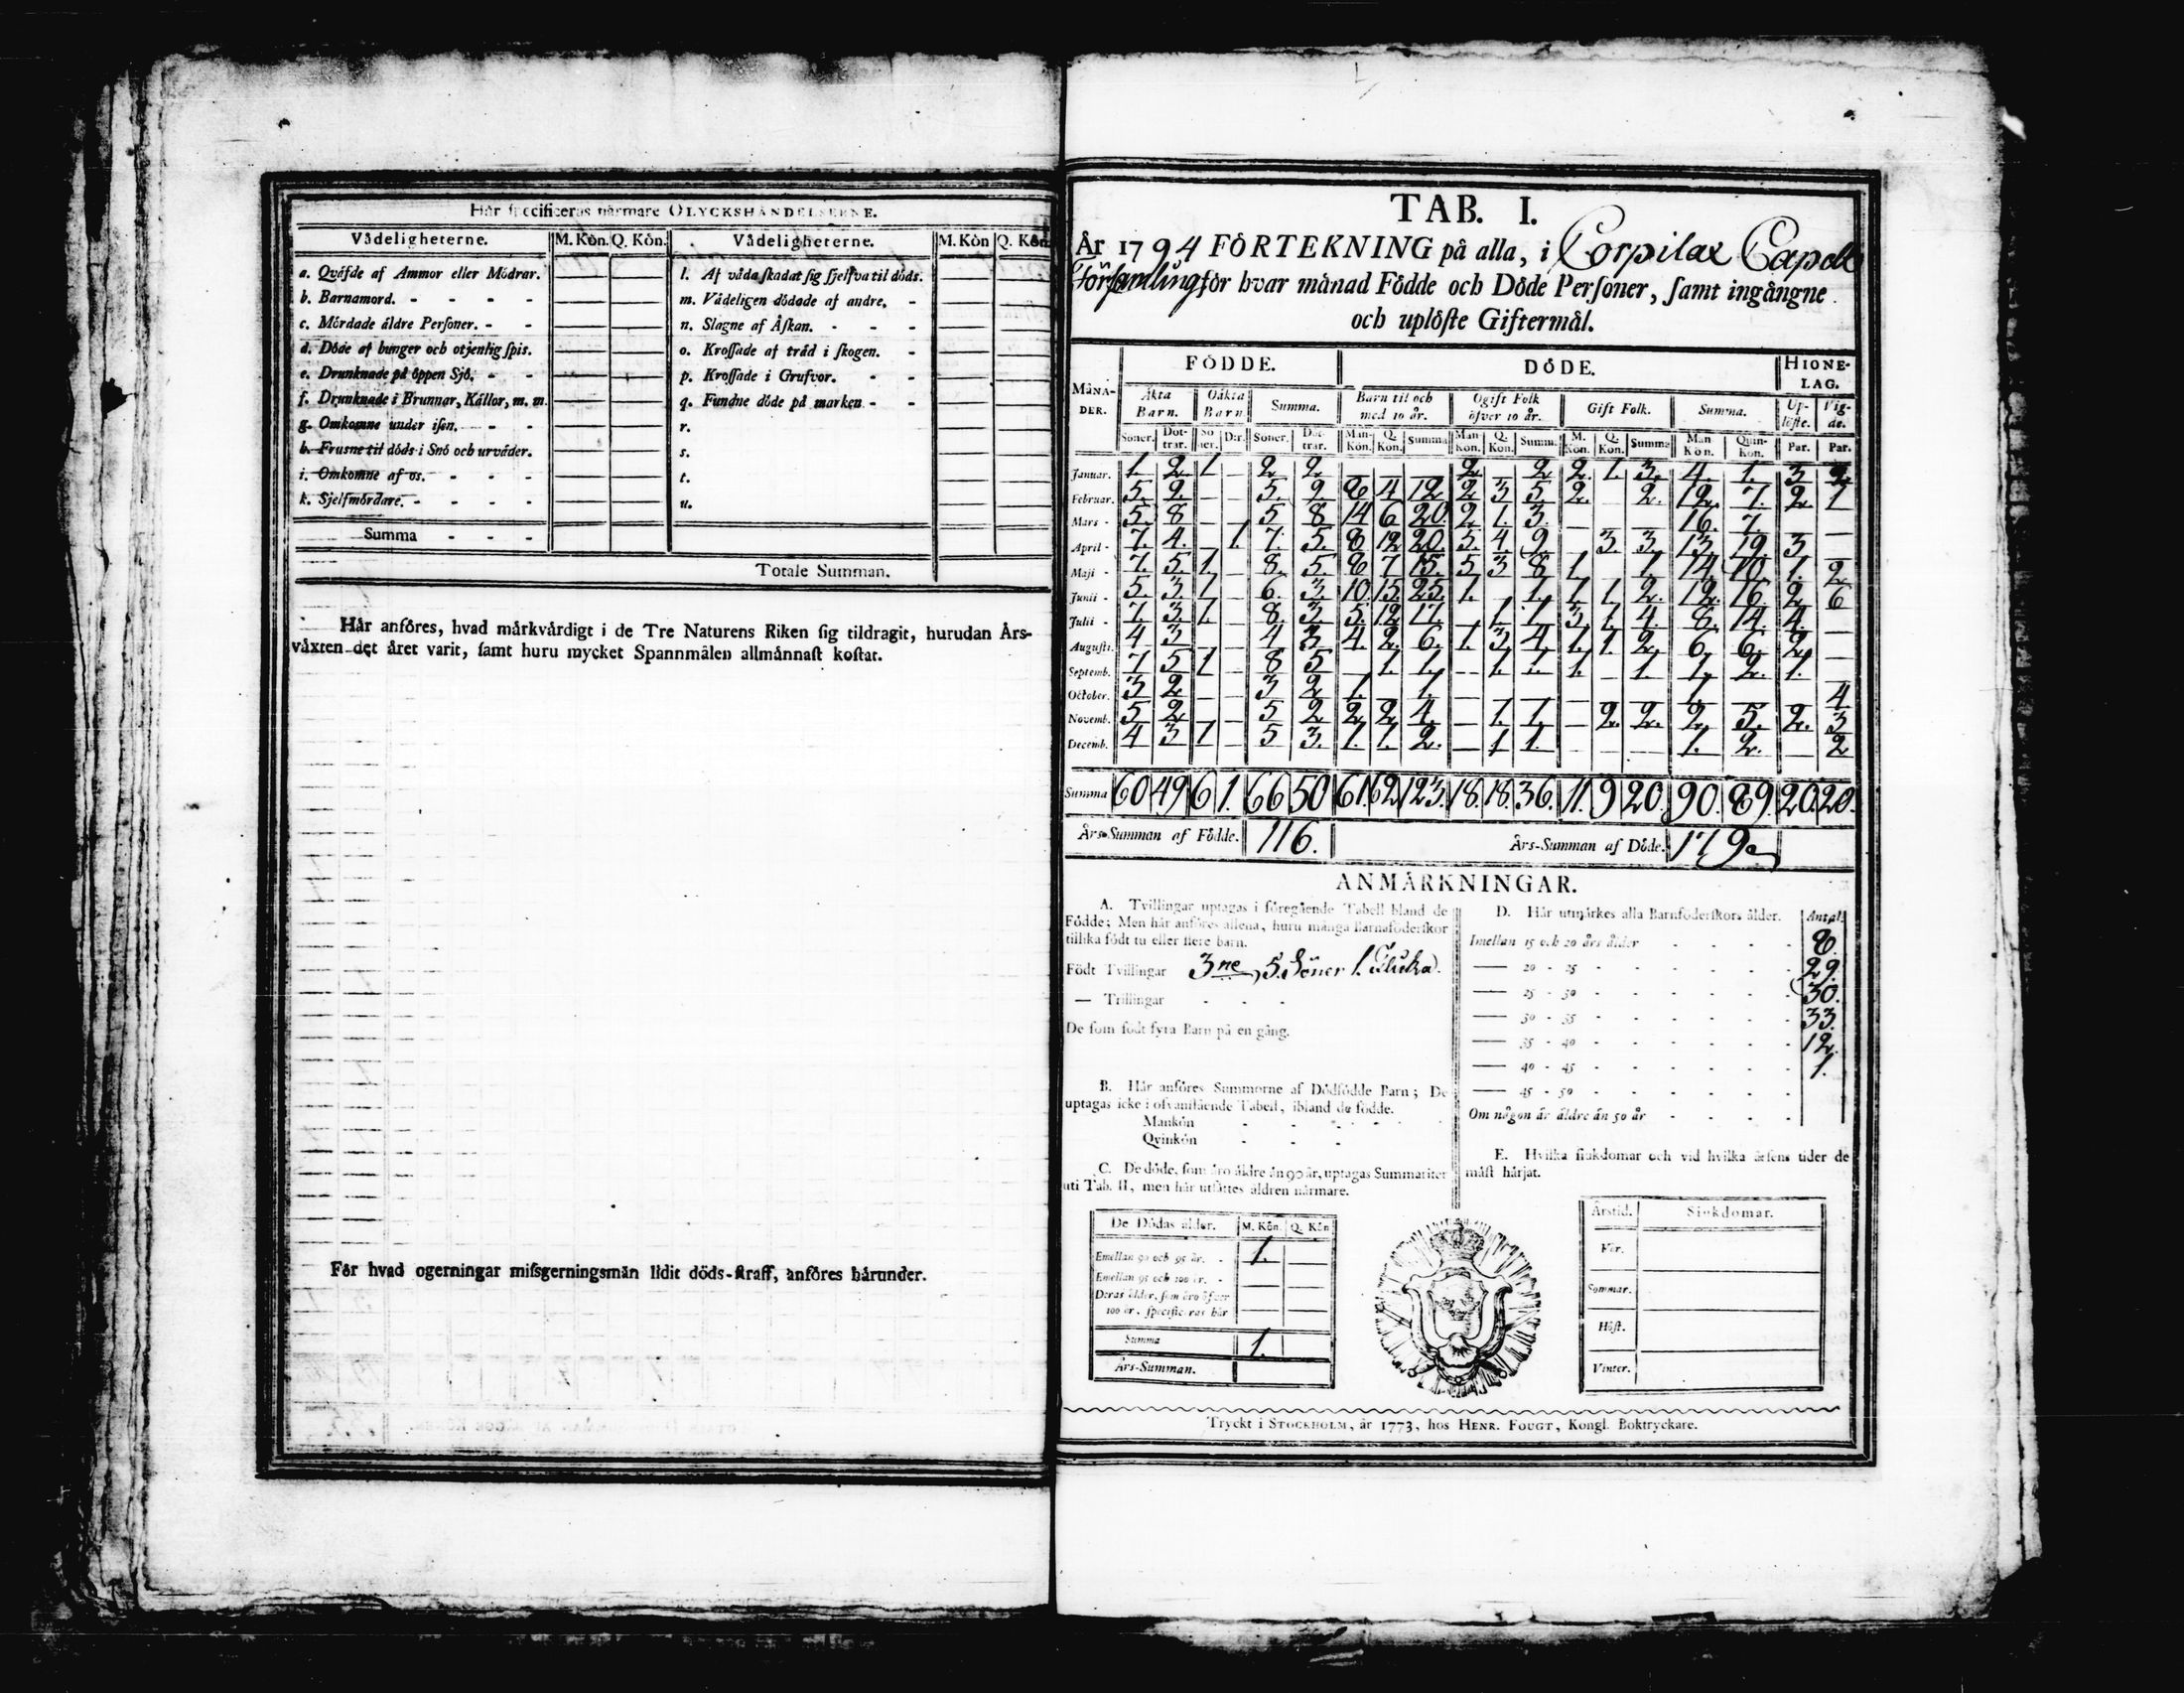 Hår specificeras nårmare OLYCKSHÅNDELSERNE.
Vådeligheterne. M. Kön. Q. Kön. Vådeligheterne. M. Kön Q. Kön
a. Qváfde af Ammor eller Módrar. l. Af våda skadat sig sjelfva til döds.
b. Barnamord. - - - m. Vådeligen dödade af andre. -
c. Mördade äldre Personer. - - n. Slagne af Åskan. - - -
d. Döde af hunger och otjenlig spis. o. Krossade af träd i skogen. -
e. Drunknade på öppen Sjö. - - p. Krossade i Grufvor. - -
f. Drunknade i Brunnar, Källor, m. m. q. Fundne döde på marken - -
g. Omkomne under isen. - - r.
h. Frusne til döds i Snö och urväder. s.
i. Omkomne af os. - - - t.
k. Sjelfmördare. - - - u.
Summa - - -
Totale Summan.
Hår anföres, hvad mårkvårdigt i de Tre Naturens Riken sig tildragit, hurudan Års-
våxten det året varit, samt huru mycket Spannmålen allmånnast kostat.
För hvad ogerningar missgerningsmän lidit döds-straff, anföres hårunder.
TAB. I.
År 1794 FÖRTEKNING på alla, i Corpilax Capell
församling för hvar månad Födde och Döde Personer, samt ingångne
och uplöste Giftermål.
MÅNA-DER. FÖDDE. DÖDE. HIONE-LAG.
Äkta Barn. Oäkta Barn. Summa. Barn til och med 10 år. Ogift Folk öfver 10 år. Gift Folk. Summa. Up-löste. Vig-de.
Söner. Döt-trar. Sö-ner. D:r. Söner. Döt-trar. Man-Kön. Q. Kön. Summa Man-Kön. Q. Kön. Summa. M. Kön. Q. Kön. Summa Man Kön. Quin-Kön. Par. Par.
Januar. 1. 2 1 — 2 2 — — — 2 — 2 2. 1. 3. 4. 1. 3 2.
Februar. 5. 9. — — 5. 9. 8 4 12 2 3 5 2. — 2. 12. 7. 2. 1
Mars - 5. 8 — — 5 8 14 6 20 2 1. 3. — — — 16. 7. — —
April - 7. 4. — 1. 7. 5. 8 12 20. 5. 4. 9. — 3. 3. 13. 19. 3 —
Maji - 7. 5 1. — 8. 5. 8 7 15. 5 3 8 1. — 1. 14. 10. 1. 2
Junii - 5. 3 1 — 6. 3. 10. 15. 25. 1. — 1. 1. 1. 2. 12. 16. 2. 6
Julii - 7. 3. 1. — 8. 3 5. 12 17. — 1. 1 3. 1. 4. 8. 14. 4. —
Augusti. 4 3 — — 4 3. 4. 2. 6. 1. 3 4 1. 1. 2. 6. 6. 2. —
Septemb. 7 5 1 — 8 5 — 1. 1. — 1. 1. 1. — 1. 1. 2. 1. —
October. 3 2 — — 3 2 1. — 1. — — — — — — 1. — — 4
Novemb. 5 2 — — 5 2 2 2 4. — 1. 1 — 2. 2. 2. 5. 2. 3
Decemb. 4 3 1 — 5 3. 1. 1. 2. — 1 1. — — — 1. 2. — 2
Summa 60 49 6 1. 66 50 61. 62. 123. 18. 18. 36. 11. 9 20. 90. 89. 20. 20.
Års-Summan af Födde. 116. Års-Summan af Döde. 179.
ANMÄRKNINGAR.
A. Tvillingar uptagas i föregående Tabell bland de
Födde; Men hår anföres allena, huru många Barnaföderskor
tillika födt tu eller flere barn.
Födt Tvillingar 3ne, 5. Söner 1. Flicka.
— Trillingar - - -
De som födt fyra Barn på en gång.
B. Hår anföres Summorne af Dödfödde Barn; De
uptagas icke i ofvanstående Tabell, ibland de födde.
Mankön - - - - -
Qvinkön - - -
C. De döde, som äro äldre än 90 år, uptagas Summariter
uti Tab. II, men hår utsättes äldren nårmare.
De Dödas ålder. M. Kön. Q. Kön
Emellan 90 och 95 år. - 1.
Emellan 95 och 100 år. -
Deras ålder, som äro öfver
100 år, specificeras hår
Summa 1.
Års-Summan.
D. Hår utmärkes alla Barnföderskors ålder. Antal.
Imellan 15 och 20 års ålder - - - - 8.
— 20 - 25 - - - - - - 29.
— 25 - 30 - - - - - - 30.
— 30 - 35 - - - - - - 33.
— 35 - 40 - - - - - - 12.
— 40 - 45 - - - - - - 1.
— 45 - 50 - - - - - -
Om någon är äldre än 50 år - - - -
E. Hvilka siukdomar och vid hvilka årsens tider de
mäst hårjat.
Årstid. Siukdomar.
Vår.
Sommar.
Höst.
Vinter.
Tryckt i STOCKHOLM, år 1773, hos HENR. FOUGT, Kongl. Boktryckare.